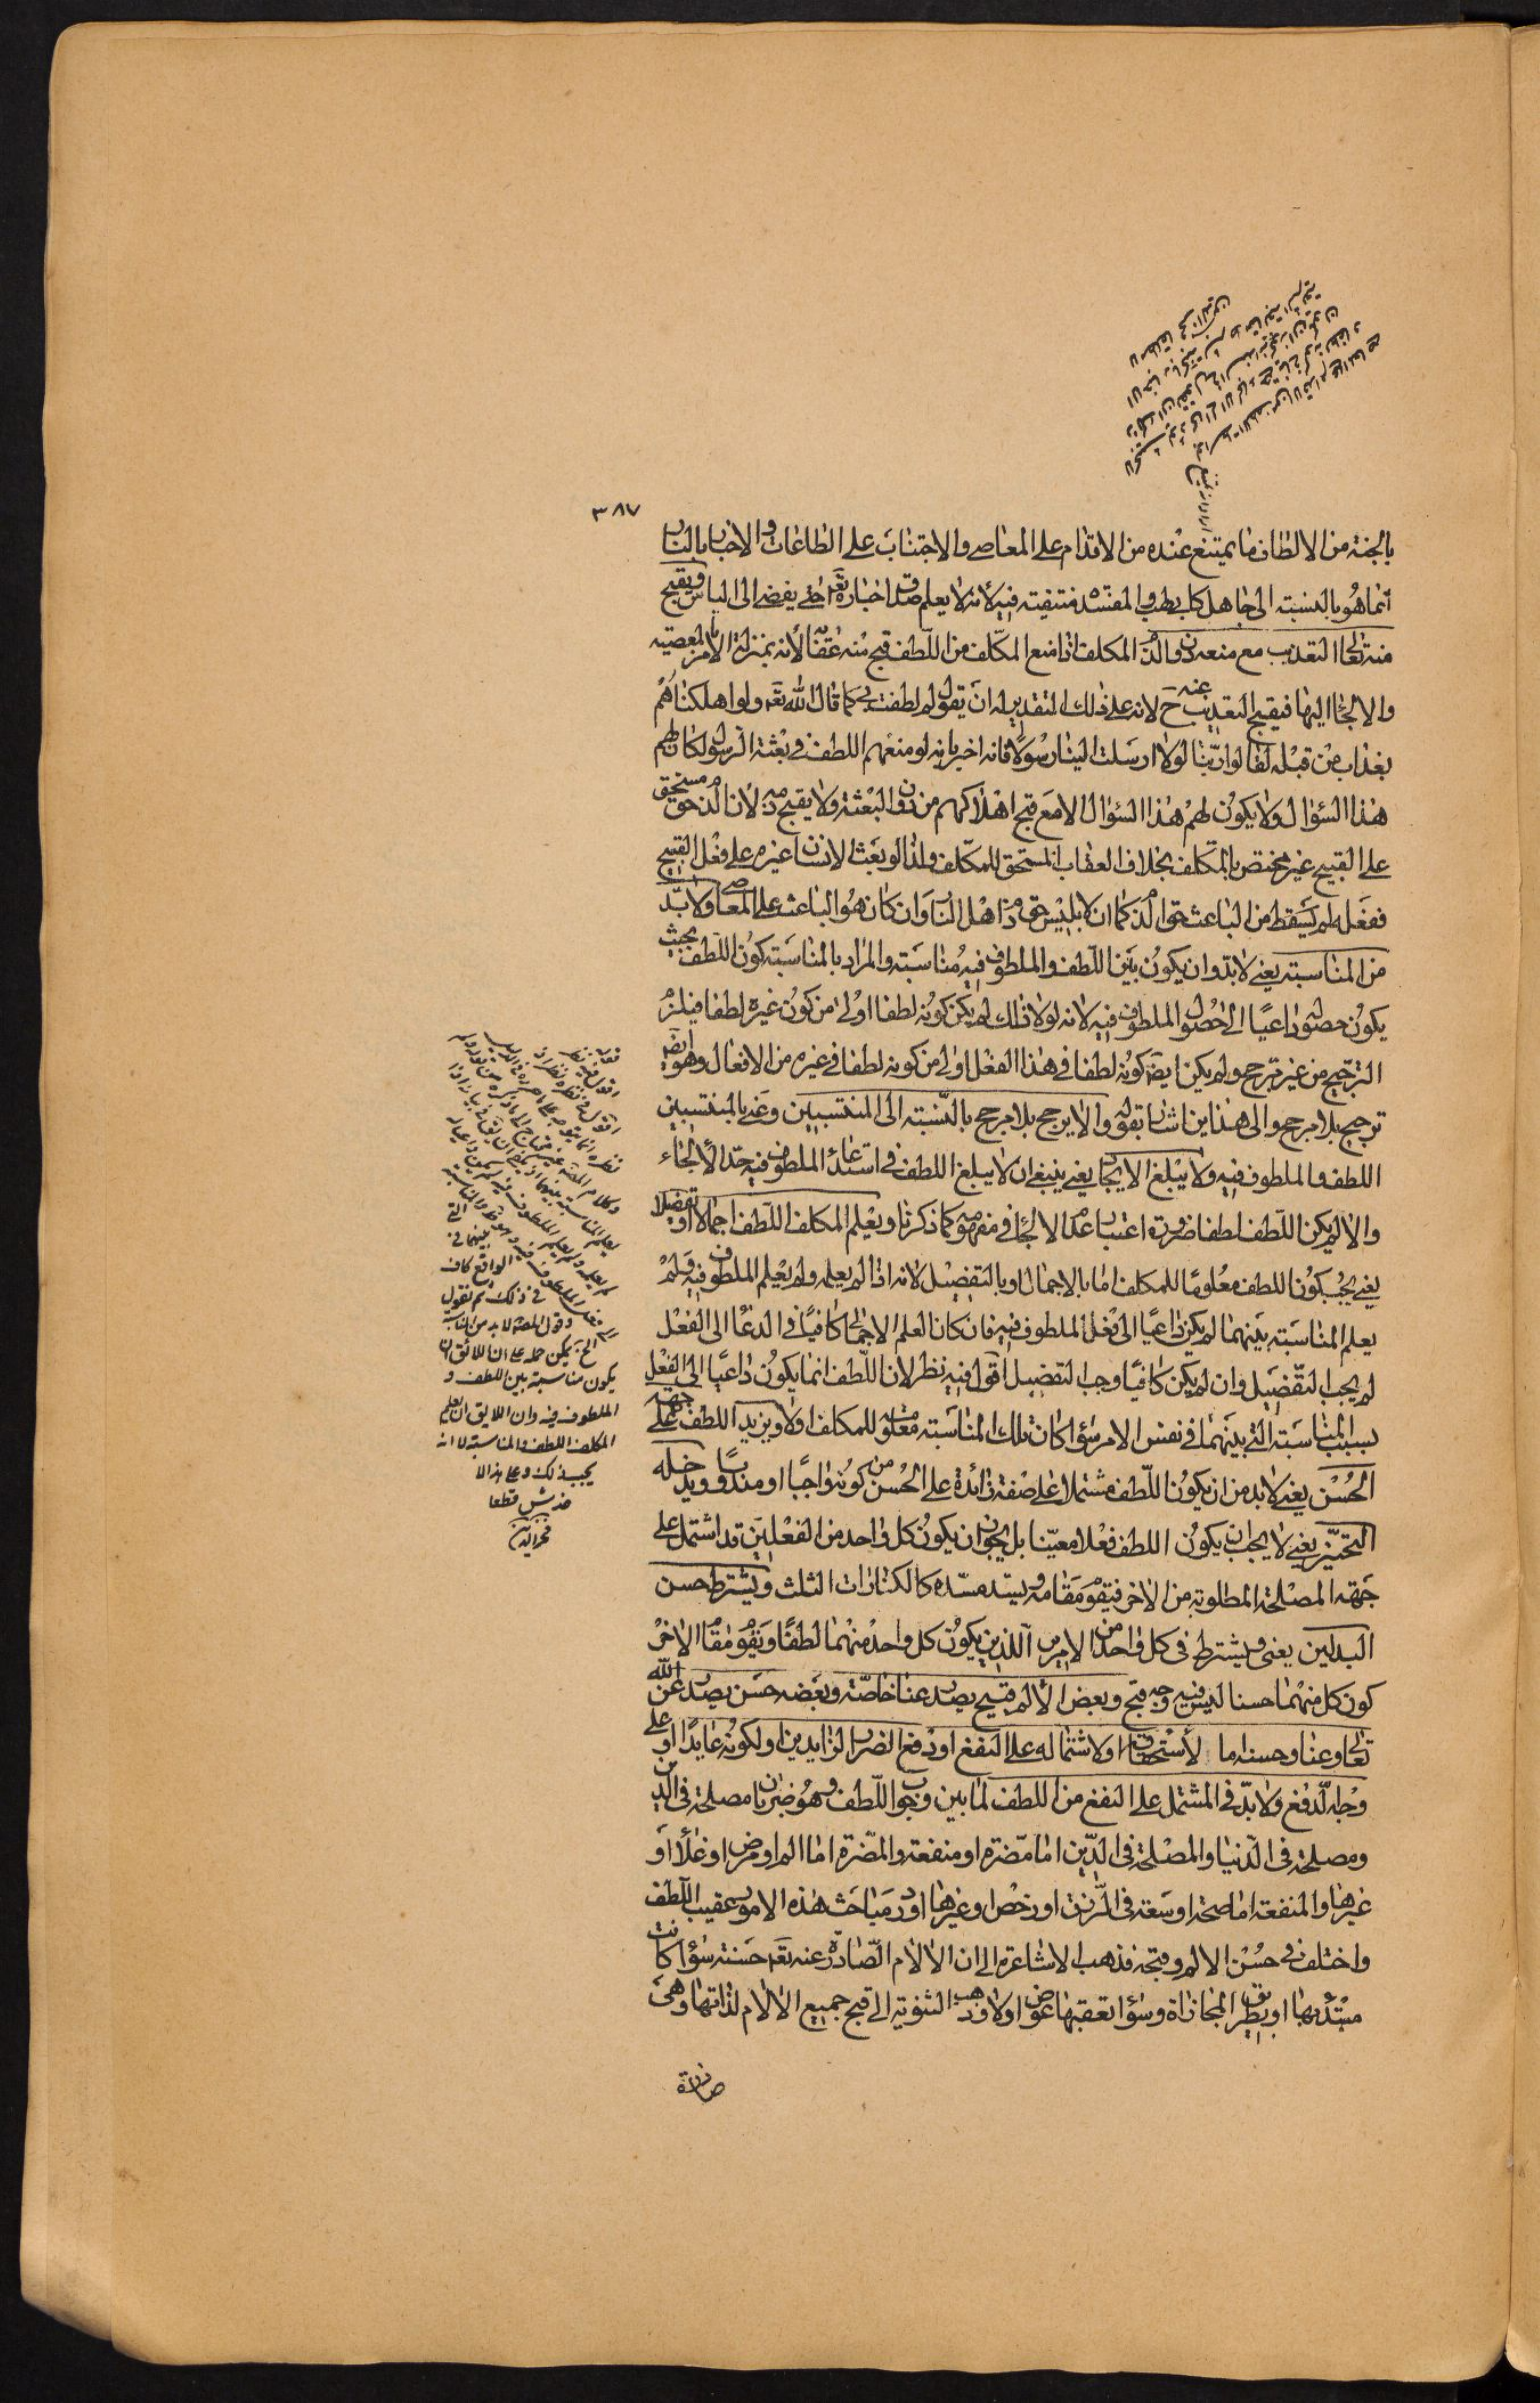 ٣٨٧
بالجنة من الالطاف ما يمتنع عنده من الاقدام على المعاصى والاجتناب على الطاعات والاخبار بالنار
انما هو بالنسبة الى جاهل كابى لهب والمفسدة منتفية فيه لانه لا يعلم صدق اخباره تعَ حتى يفضى الى الياس ويقبح
منه تعالى التعذيب مع منعه دون الذم المكلف اذا منع المكلف من اللطف قبح منه عقابه لانه بمنزلة الامر بالمعصية
والالجاء اليها فيقبح التعذيب عنه ح لانه على ذلك التقدير له ان يقول لم لطفت بى كما قال الله تعَ ولو اهلكناهم
بعذاب من قبله لقالوا ربنا لولا ارسلت الينا رسولا فانه اخبر بانه لو منعهم اللطف فى بعثة الرسول لكان لهم
هذا السؤال ولا يكون لهم هذا السؤال الا مع قبح اهلاكهم من دون البعثة ولا يقبح ذمه لان الذم حق مستحق
على القبيح غير مختص بالمكلف بخلاف العقاب المستحق للمكلف ولذا لو بعث الانسان غيره على فعل القبيح
ففعله لم يسقط من الباعث حق الذم كما ان لابليس حق ذم اهل النار وان كان هو الباعث على المعاصى ولا بد
من المناسبة يعنى لا بد وان يكون بين اللطف والملطوف فيه مناسبة والمراد بالمناسبة كون اللطف بحيث
يكون حصوله داعيا الى حصول الملطوف فيه لانه لولا ذلك لم يكن كونه لطفا اولى من كون غيره لطفا فيلزم
الترجيح من غير مرجح ولم يكن ايضَ كونه لطفا فى هذا الفعل اولى من كونه لطفا فى غيره من الافعال وهو ايضَ
ترجيح بلا مرجح والى هذين اشار بقوله والا يرجح بلا مرجح بالنسبة الى المنتسبين وعنى بالمنتسبين
اللطف والملطوف فيه ولا يبلغ الالجاء يعنى ينبغى ان لا يبلغ اللطف فى استدعاء الملطوف فيه حد الالجاء
والا لم يكن اللطف لطفا ضرورة اعتبار عدم الالجاء فى مفهومه كما ذكرنا ويعلم المكلف اللطف اجمالا او تفصيلا
يعنى يجب كون اللطف معلوما للمكلف اما بالاجمال او بالتفصيل لانه اذا لم يعلمه ولم يعلم الملطوف فيه ولم
يعلم المناسبة بينهما لم يكن داعيا الى فعل الملطوف فيه فان كان العلم الاجمالى كافيا فى الدعاء الى الفعل
لم يجب التفصيل وان لم يكن كافيا وجب التفصيل اقول فيه نظر لان اللطف انما يكون داعيا الى الفعل
بسبب المناسبة التى بينهما فى نفس الامر سواء كانت تلك المناسبة معلومة للمكلف اولا ويزيد اللطف على جهة
الحسن يعنى لا بد من ان يكون اللطف مشتملا على صفة زائدة على الحسن من كونه واجبا او مندوبا ويدخله
التخيير يعنى لا يجب ان يكون اللطف فعلا معينا بل يجوز ان يكون كل واحد من الفعلين قد اشتمل على
جهة المصلحة المطلوبة من الاخر فيقوم مقامه ويسد مسده كالكفارات الثلث ويشترط حسن
البدلين يعنى ويشترط فى كل واحد من الامرين اللذين يكون كل واحد منهما لطفا ويقوم مقام الاخر
كون كل منهما حسنا ليس فيه وجه قبح وبعض الالم قبيح يصدر عنا خاصة وبعضه حسن يصدر عن الله
تعالى وعنا وحسنه اما لاستحقاق او لاشتماله على النفع او دفع الضرر الزايدين او لكونه عاديا او على
وجه الدفع ولا بد فى المشتمل على النفع من اللطف لما بين وجوب اللطف وهو ضربان مصلحة فى الدين
ومصلحة فى الدنيا والمصلحة فى الدين اما مضرة او منفعة والمضرة اما الم او مرض او غلاء او
غيرها والمنفعة اما صحة او سعة فى الرزق او رخص او غيرها اورد مباحث هذه الامور عقيب اللطف
واختلف فى حسن الالم وقبحه فذهب الاشاعرة الى ان الالام الصادرة عنه تعَ حسنة سواء كانت
مبتدءً بها او بطريق المجازاة وسواء تعقبها عوض اولا وذهب الثنوية الى قبح جميع الالام لذاتها وهى
صادرة
فى ذلك ثم نقول
وقول المصَ لا بد من المناسبة
الخ يمكن حمله على ان اللائق ان
يكون مناسبة بين اللطف و
الملطوف فيه وان اللايق ان يعلم
المكلف اللطف والمناسبة لا انه
يجب ذلك وعلى هذا لا
خدش قطعا
فخر الدين